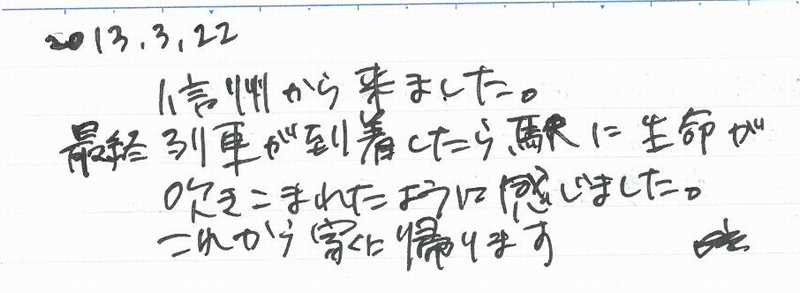 2013.3.22
信州から来ました。
最終列車が到着したら、駅に生命が
吹きこまれたように感じました。
これから家に帰ります